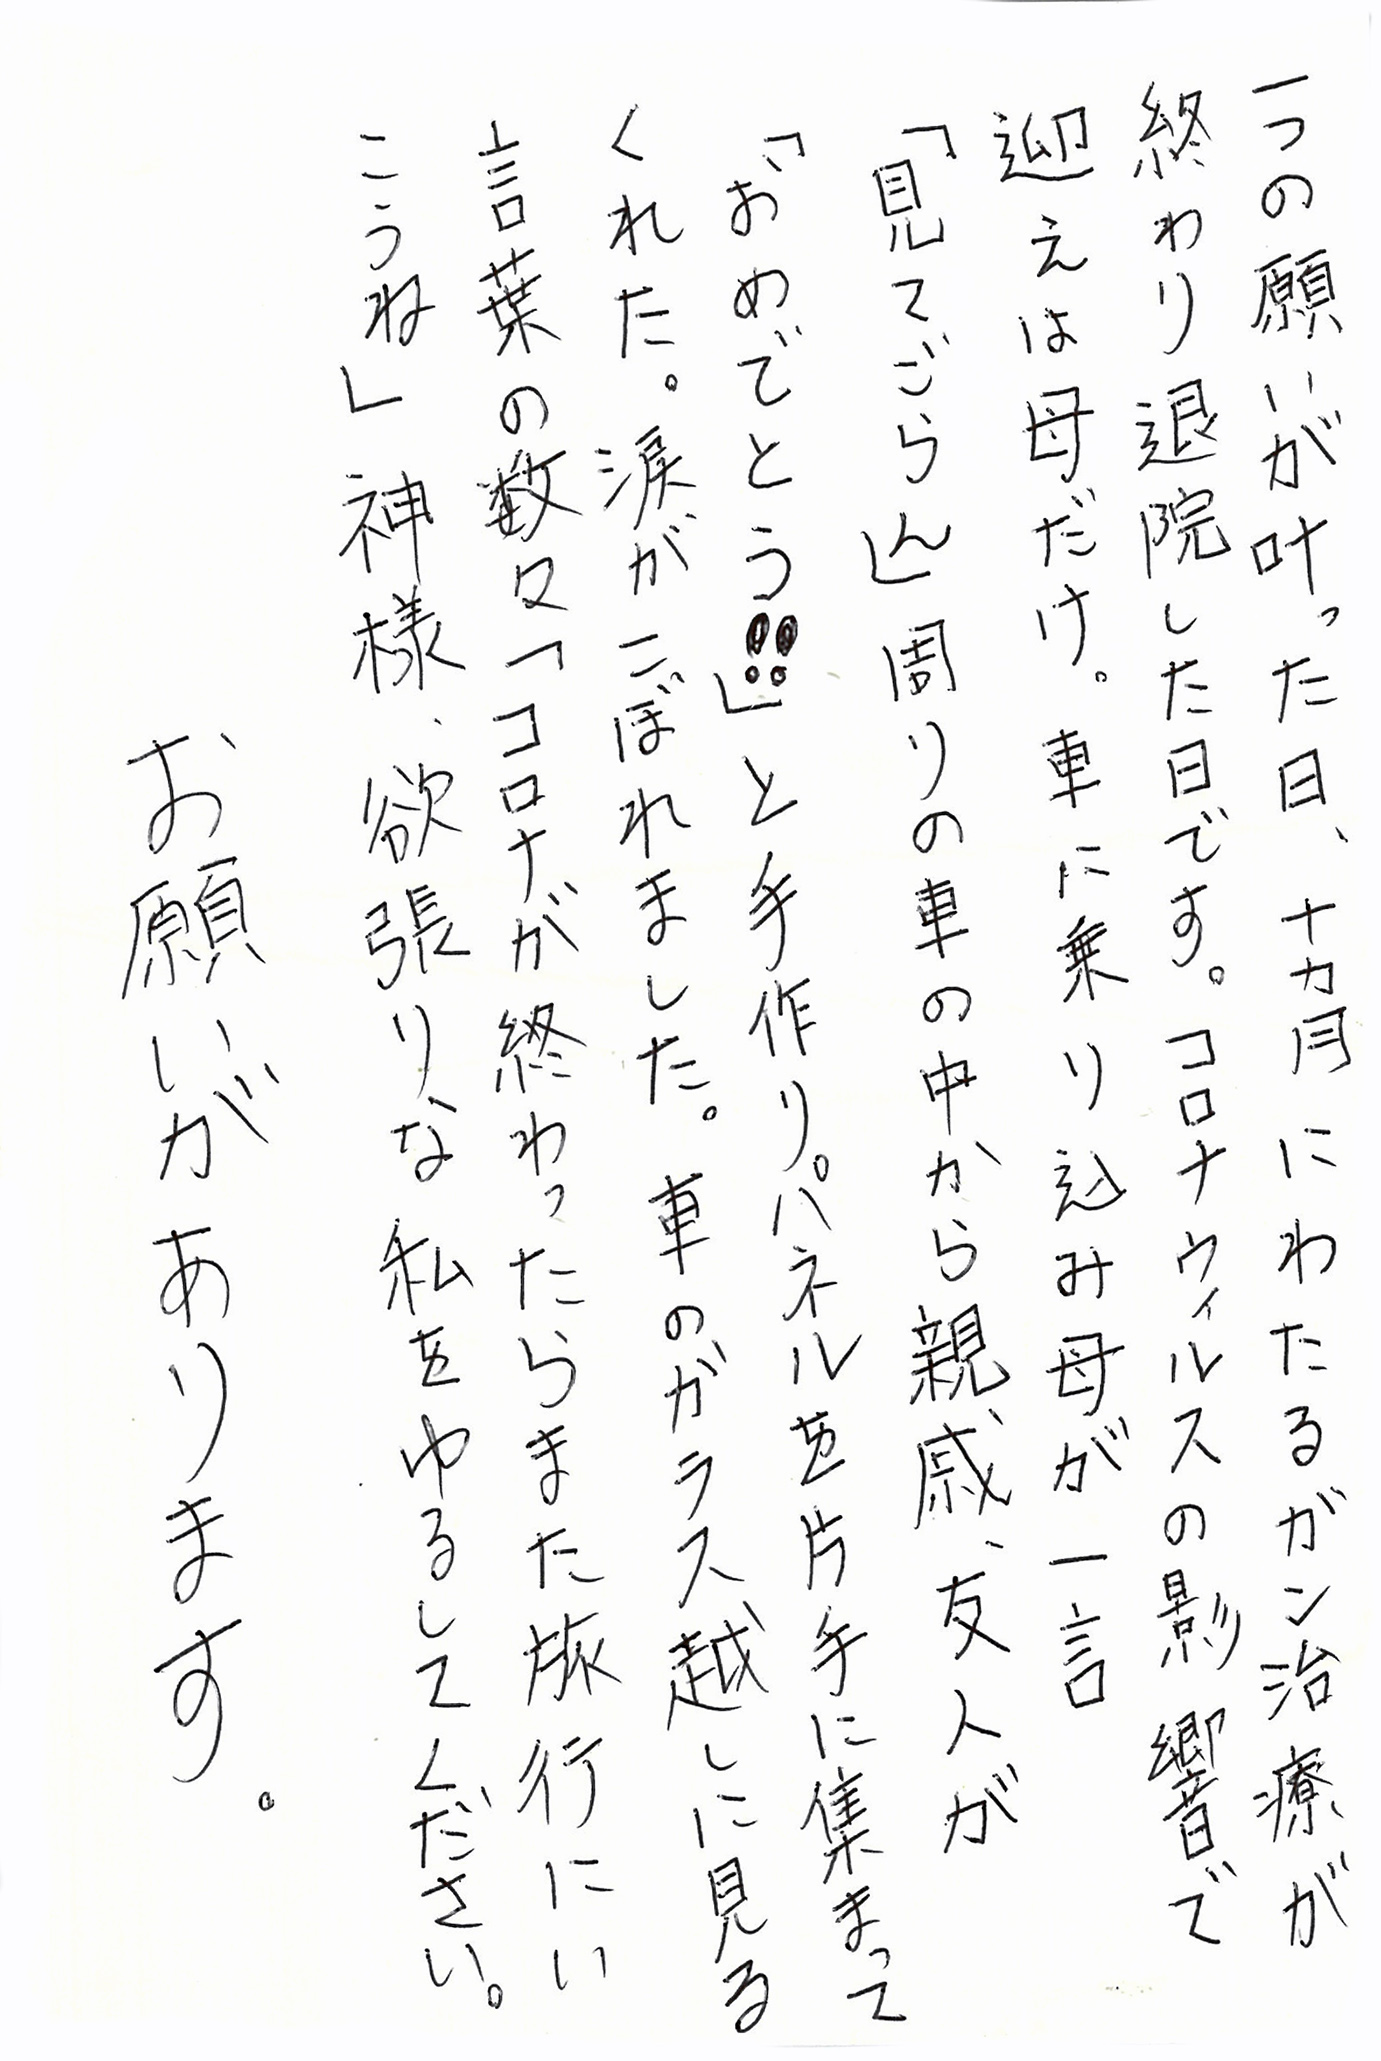 一つの願いが叶った日、十ヵ月にわたるガン治療が
終わり退院した日です。コロナウィルスの影響で
迎えは母だけ。車に乗り込み母が一言
「見てごらん」周りの車の中から親戚、友人が
「おめでとう!!」と手作りパネルを片手に集まって
くれた。涙がこぼれました。車のガラス越しに見る
言葉の数々「コロナが終わったらまた旅行にい
こうね」神様、欲張りな私をゆるしてください。
お願いがあります。